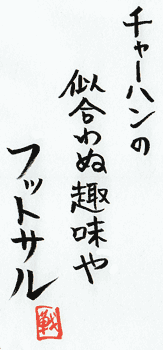 チャーハンの
似合わぬ趣味や
フットサル
戦